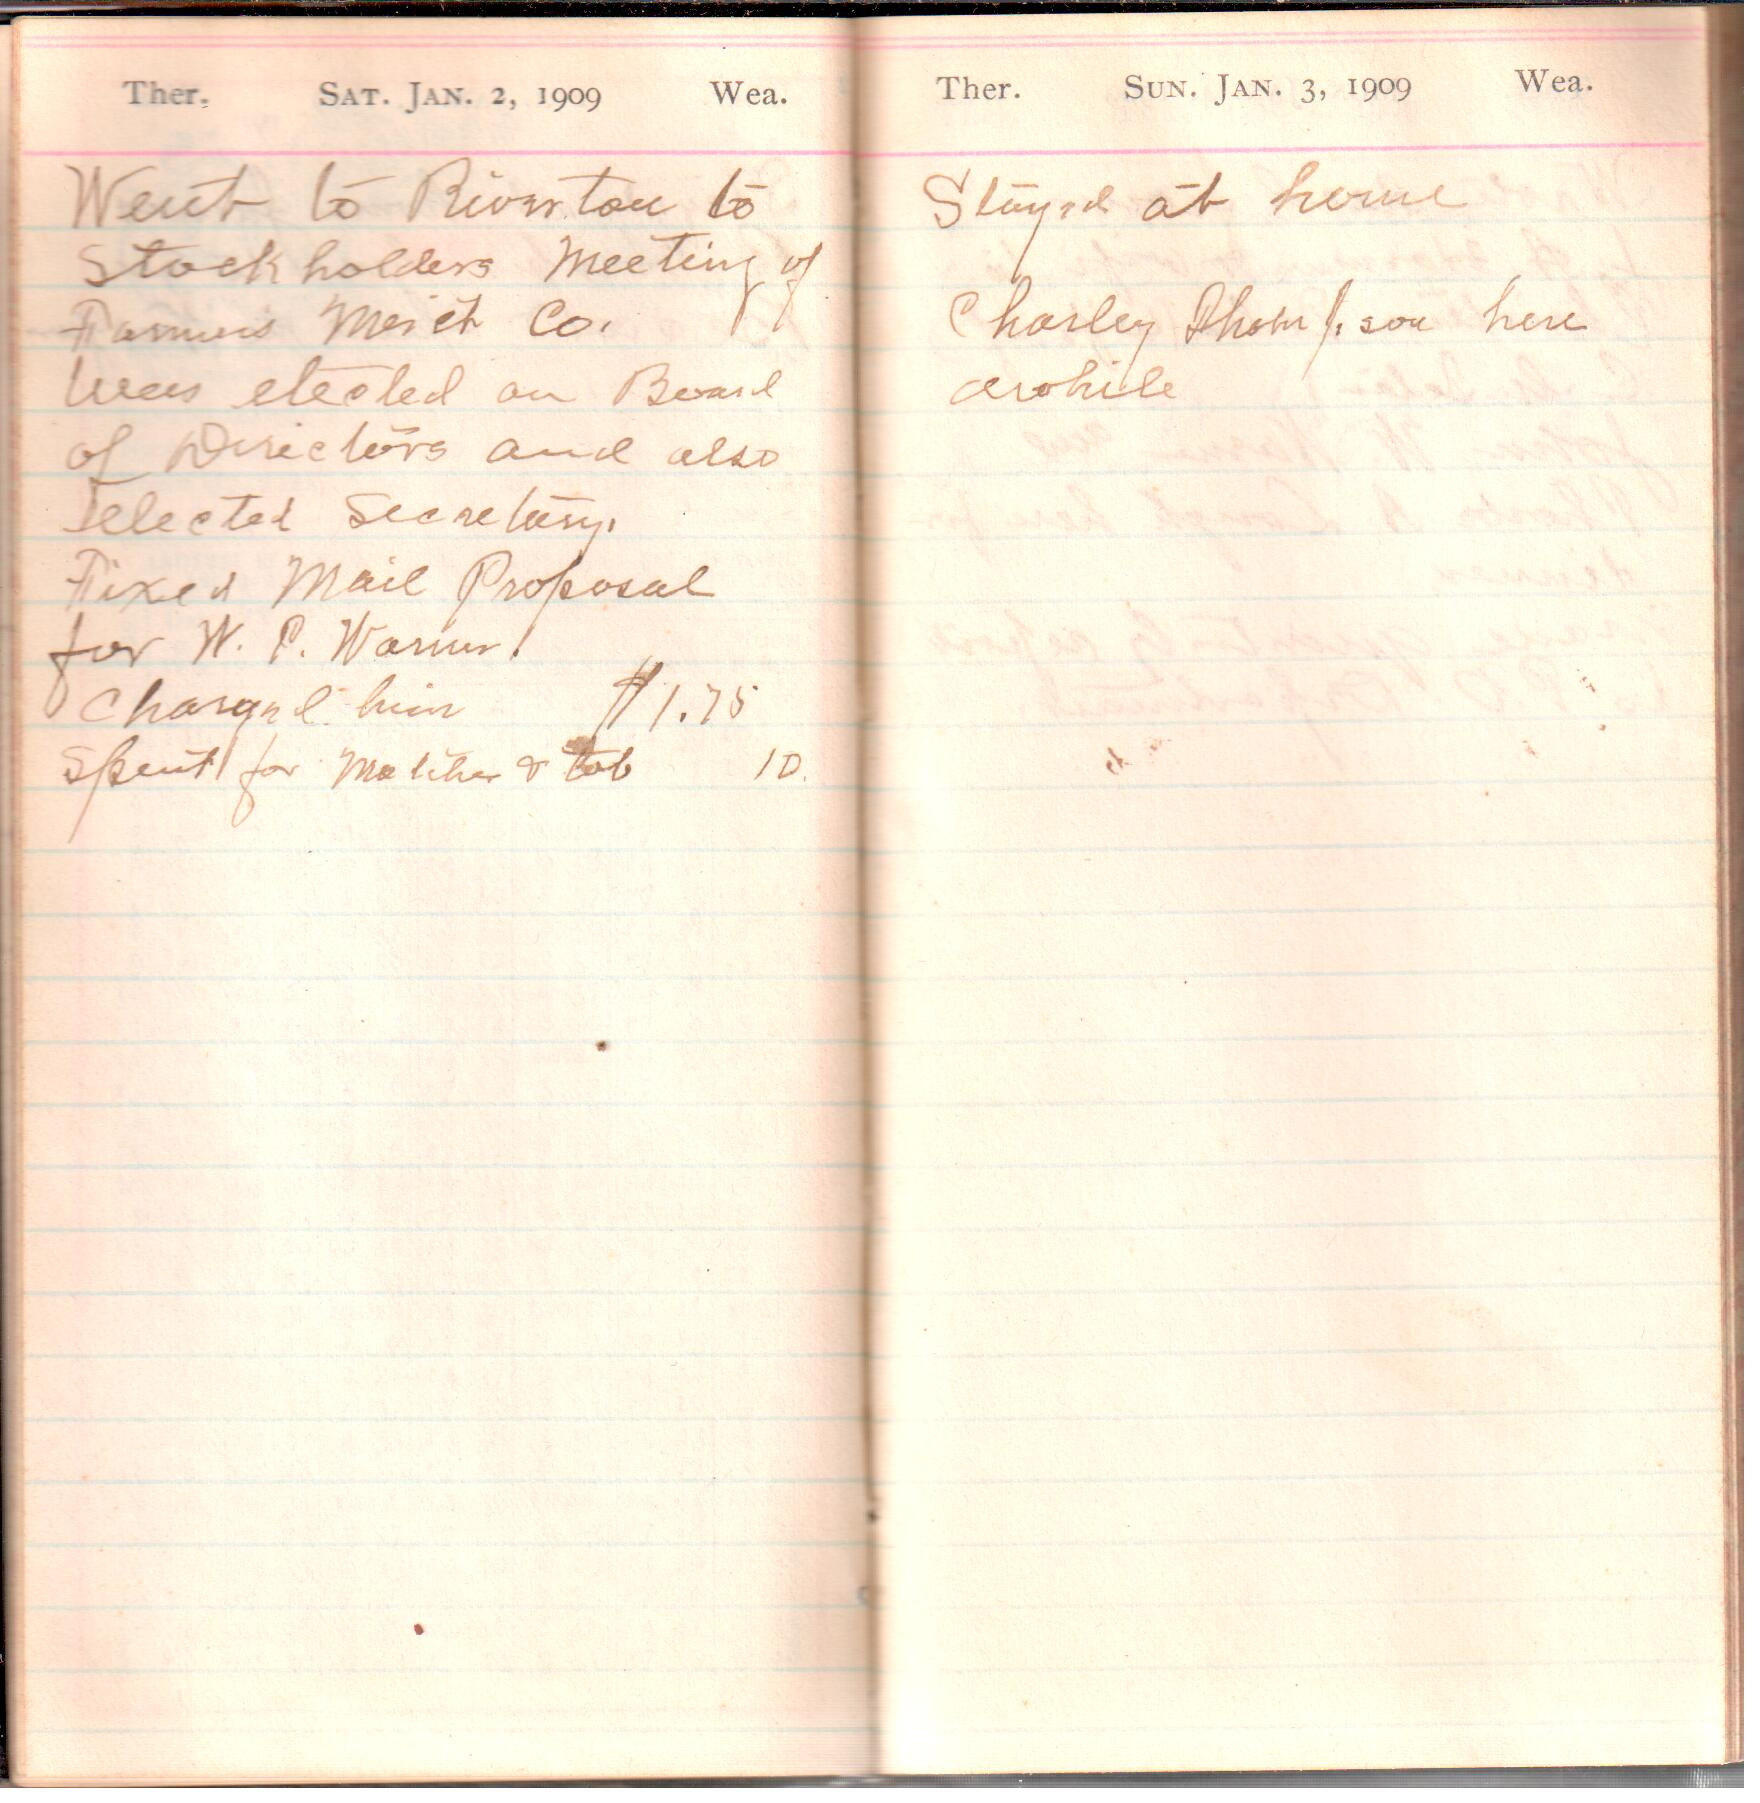 Ther. SAT. JAN. 2, 1909 Wea.
Went to Riverton to
Stockholders Meeting of
Farmers Merct Co.
Was elected on Board
of Directors and also
elected Secretary.
Fixed Mail Proposal
for W. P. Warner.
Charged him $1.75
Spent for Matches & tob 10.
Ther. SUN. JAN. 3, 1909 Wea.
Stayed at home
Charley Thompson here
awhile